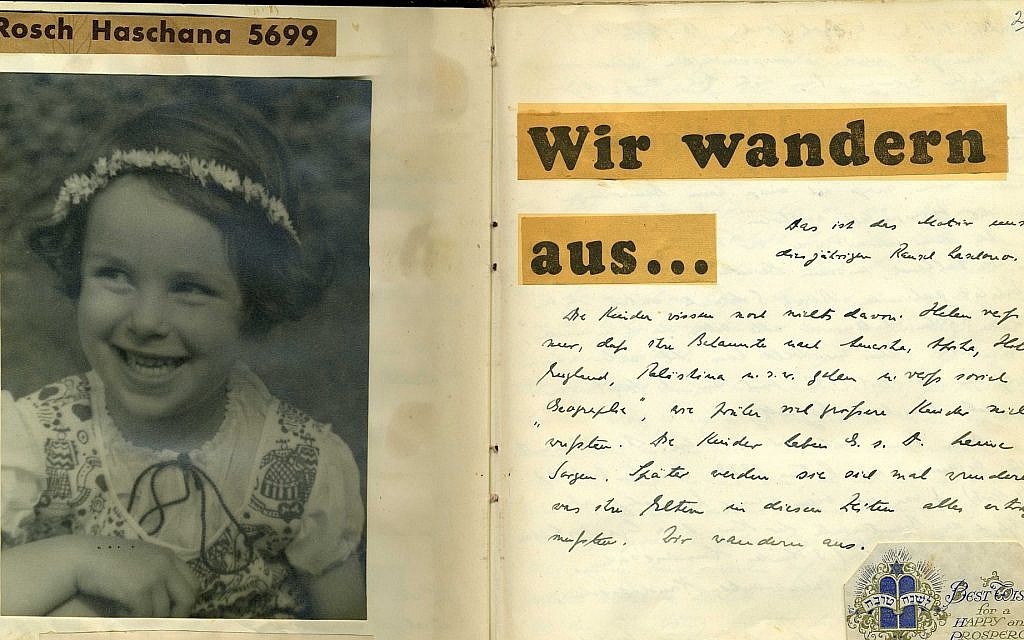 Rosch Haschana 5699
2
Wir wandern
aus...
Das ist das Motiv
dies jährigen
Die Kinder wissen noch nichts davon. Helen
nur, daß ihre Bekannte nach Amerika,
England, Palästina u.s.w. gehen u. weiß soviel
"Geographie", wie früher viel grössere Kinder
wußten. Die Kinder haben G. s. D. keine
Sorgen. Später werden sie sich mal
was ihre Eltern in diesen Zeiten alles
mußten. Wir wandern aus.
שנה טובה
Best Wis
for a
Happy an
Prospero